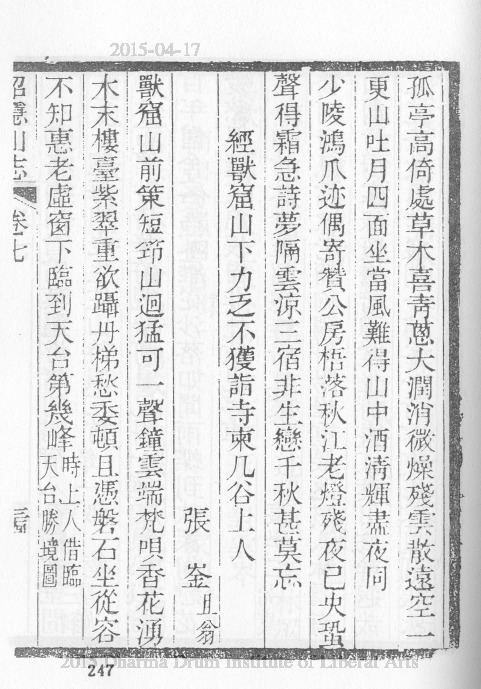 2015-04-17
孤亭高倚處草木喜青蔥大潤消微燥殘雲散遠空一
更山吐月四面坐當風難得山中酒清輝盡夜同
少陵鴻爪迹偶寄贊公房梧落秋江老燈殘夜已央蛩
聲得霜急詩夢隔雲涼三宿非生戀千秋甚莫忘
經獸窟山下力乏不獲詣寺柬几谷上人
張崟且翁
獸窟山前策短筇山迴猛可一聲鐘雲端梵唄香花湧
木末樓臺紫翠重欲躡丹梯愁委頓且憑磐石坐從容
不知惠老虛窗下臨到天台第幾峰時上人借臨天台勝境圖
招隱山志 卷七
2015 Dharma Drum Institute of Liberal Arts
247